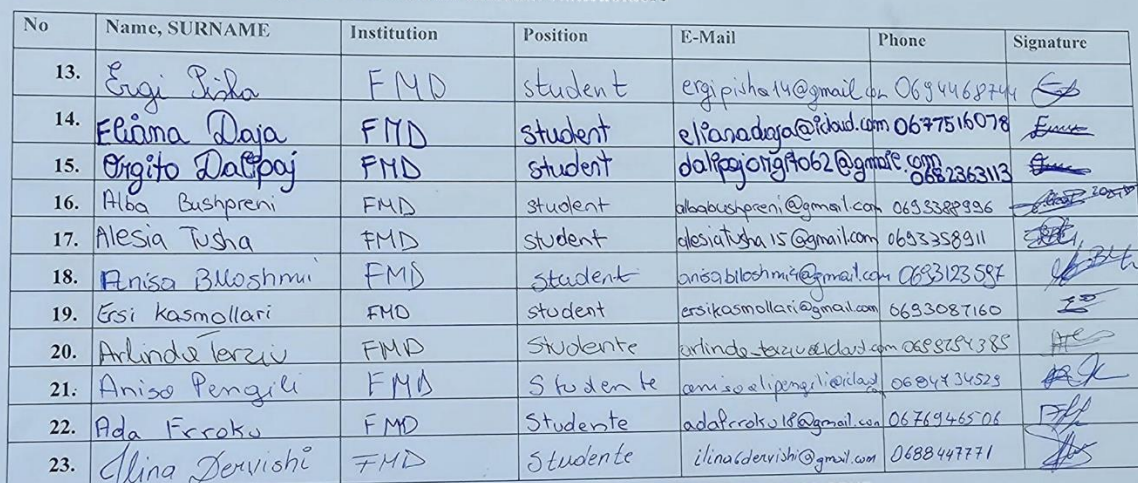 No Name, SURNAME Institution Position E-Mail Phone Signature
13. Ergi Pisha FMD student ergipisha14@gmail.com 0694468744
14. Eliana Daja FMD student elianadaja@icloud.com 0677516078
15. Orgito Dalipaj FMD student dalipajorgito62@gmail.com 0682363113
16. Alba Bushpreni FMD student albabushpreni@gmail.com 0693388996
17. Alesia Tusha FMD student alesiatusha15@gmail.com 0693358911
18. Anisa Blloshmi FMD student 0693123597
19. Ersi Kasmollari FMD student ersikasmollari@gmail.com 0693087160
20. Arlinda Terziu FMD Studente
21. Anisa Pengili FMD Studente 0684734529
22. Ada Frroku FMD Studente adafrroku18@gmail.com 0676946506
23. Ilina Dervishi FMD Studente 0688447771